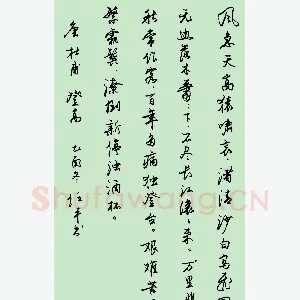 风急天高猿啸哀,渚清沙白鸟飞回
无边落木萧々下,不尽长江滚々来。万里悲
秋常作客,百年多病独登台。艰难苦
繁霜鬓,潦倒新停浊酒杯。
唐 杜甫 登高 乙酉冬
Shufawang.CN